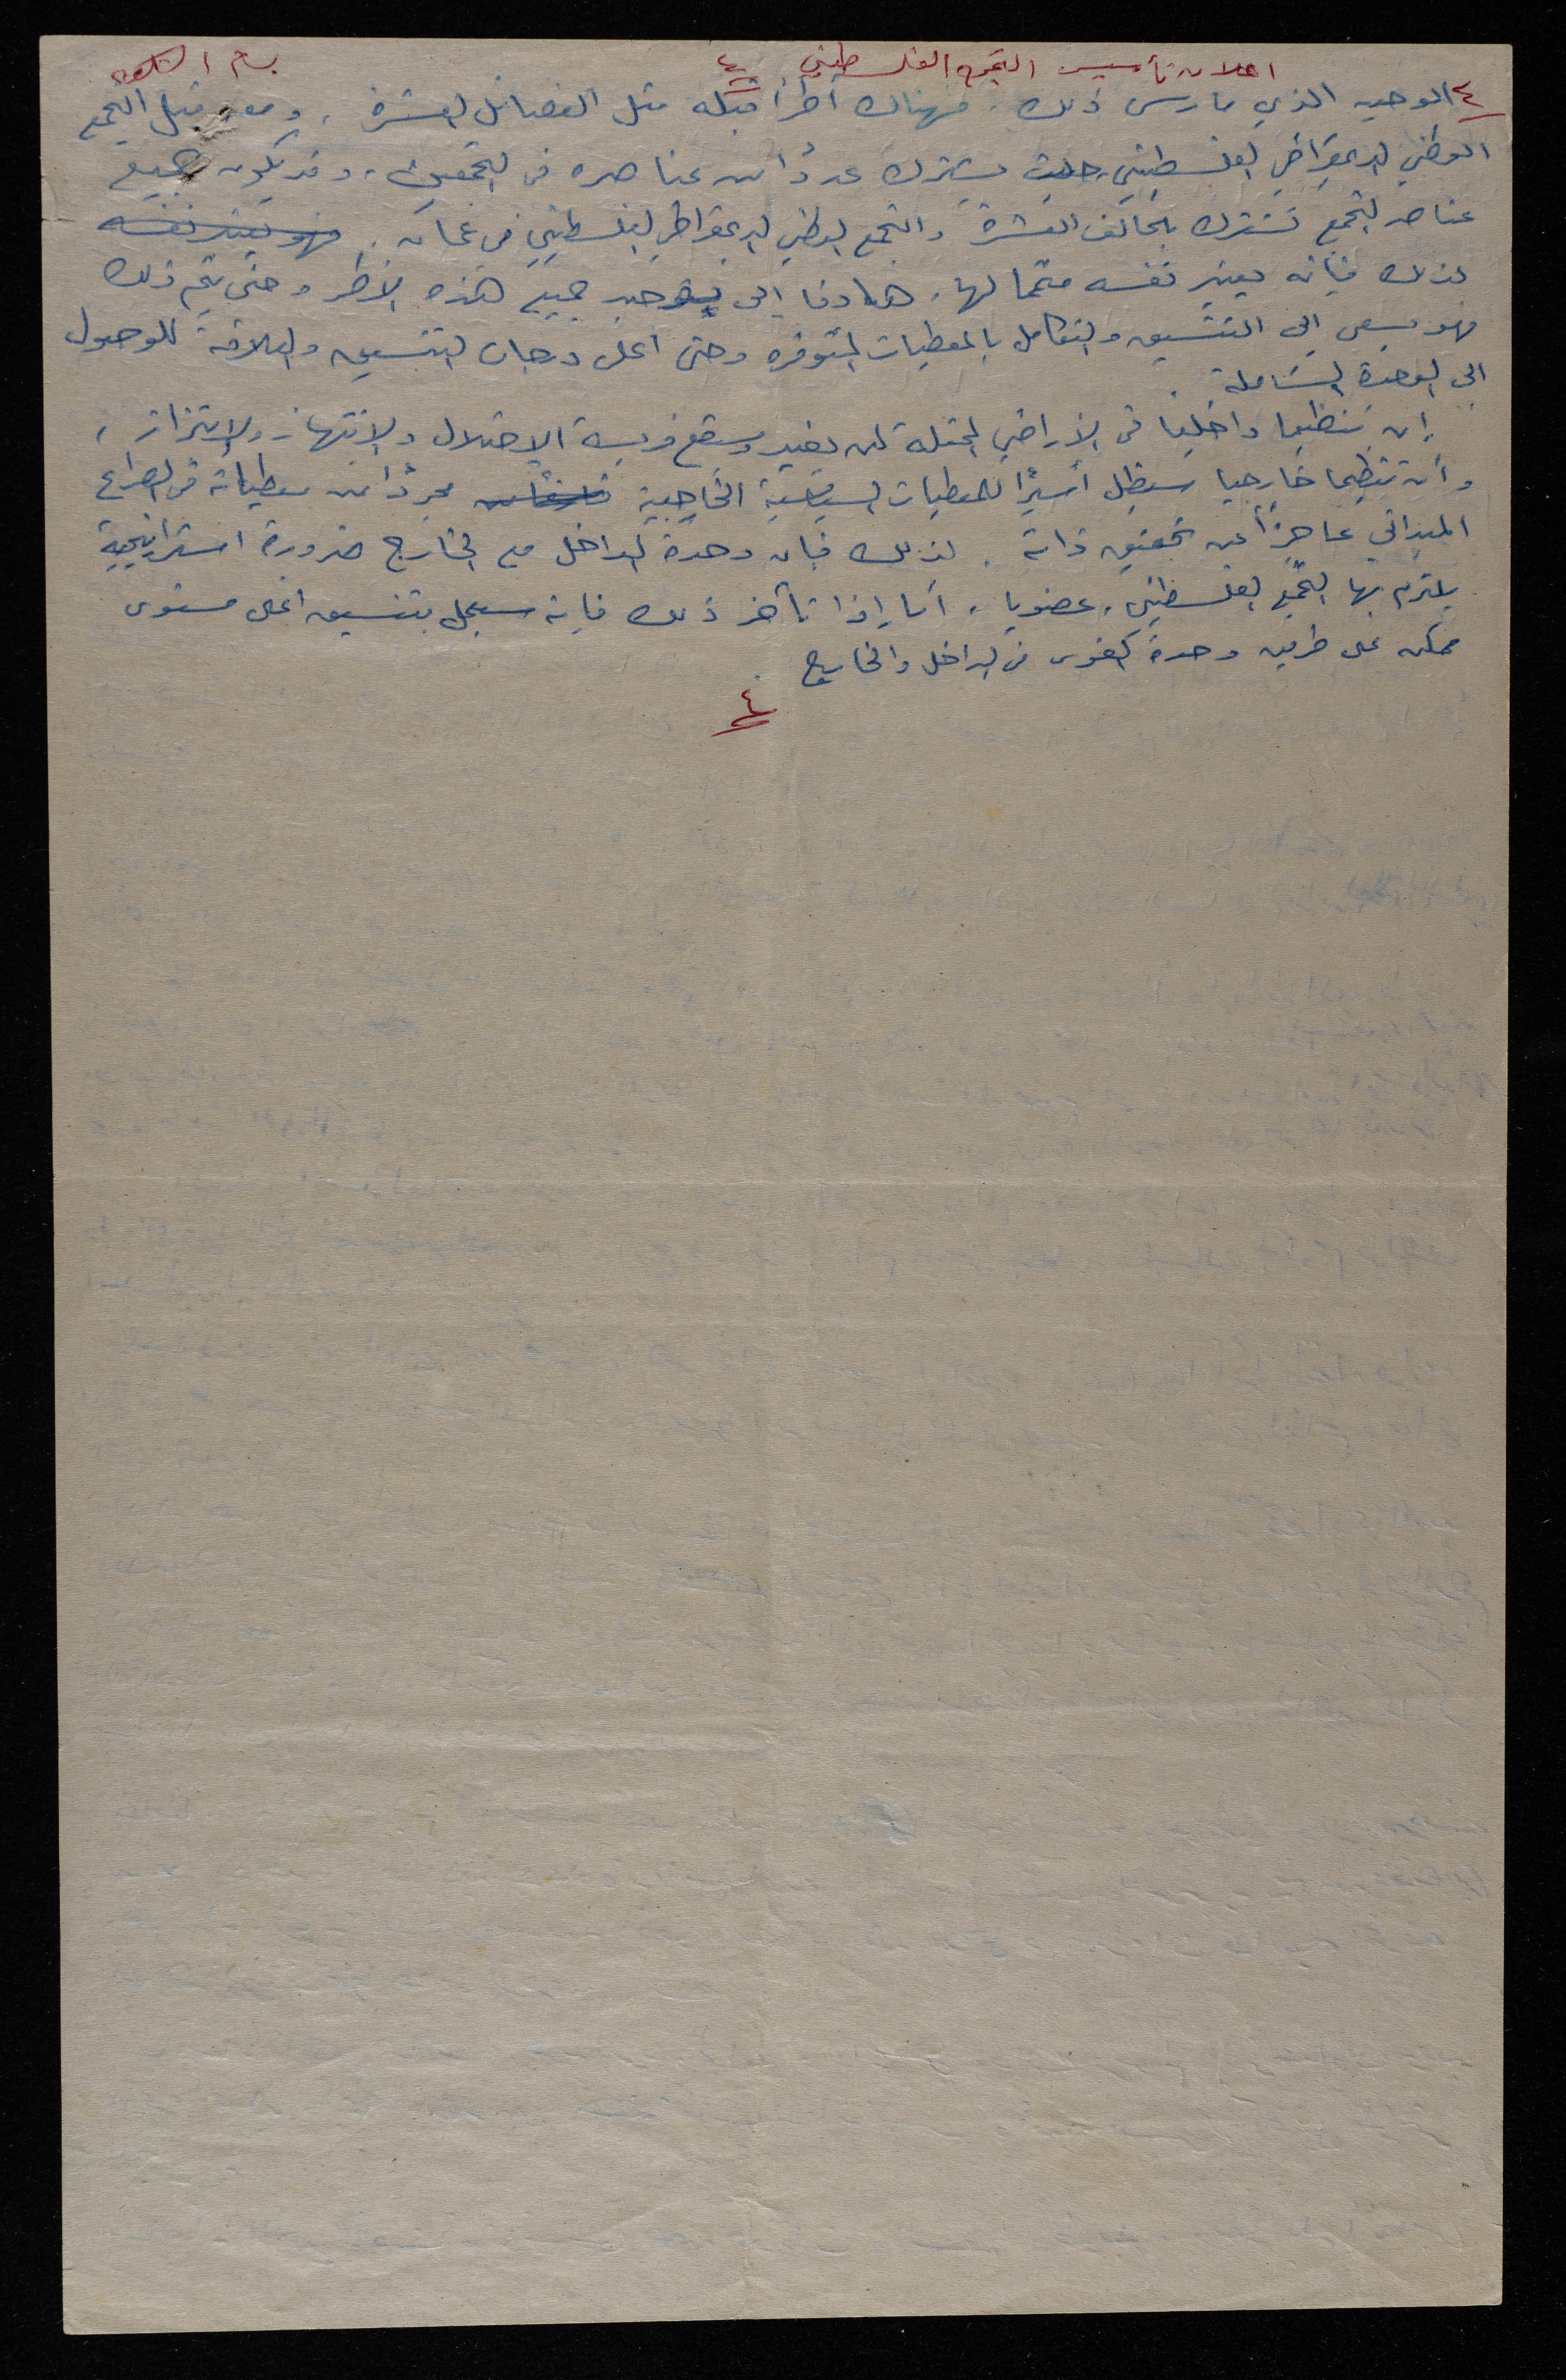 اعلان تأسيس التجمع الفلسطيني ٤ بسام الشكعه
٤ الوحيد الذي مارس ذلك. فهناك أطراً قبله مثل الفصائل العشرة، ومعه مثل التجمع
الوطني الديمقراطي الفلسطيني، حيث يشترك عدداً من عناصره في التجمعين، وقد يكون جميع
عناصر التجمع تشترك بتحالف العشرة والتجمع الوطني الديمقراطي الفلسطيني في عمان. فهو يعتبر نفسه
لذلك فإنه يعتبر نفسه متمما لها، هادفا إلى توحيد جميع هذه الأطر وحتى يتم ذلك
فهو يسعى الى التنسيق والتكامل بالمعطيات المتوفره وحتى اعلى درجات التنسيق والعلاقة للوصول
الى الوحدة الشاملة.
إن تنظيما داخليا في الأراضي المحتلة لن يفيد وسيقع فريسة الاحتلال والانتهاز والابتزاز،
وأن تنظيما خارجيا سيظل أسيرًا للمعطيات السياسية الخارجية مجردًا من معطياته في الصراع
الميداني عاجزاً عن تحقيق ذاته. لذلك فإن وحدة الداخل مع الخارج ضرورة استراتيجية
يلتزم بها التجمع الفلسطيني، عضويا، أما إذا تأخر ذلك فإنه سيعمل بتنسيق اعلى مستوى
ممكن على طريق وحدة القوى في الداخل والخارج.
٤